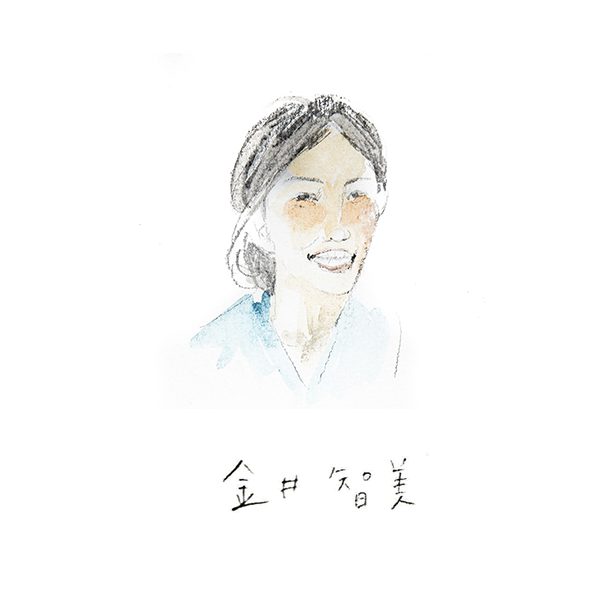 金井 智美